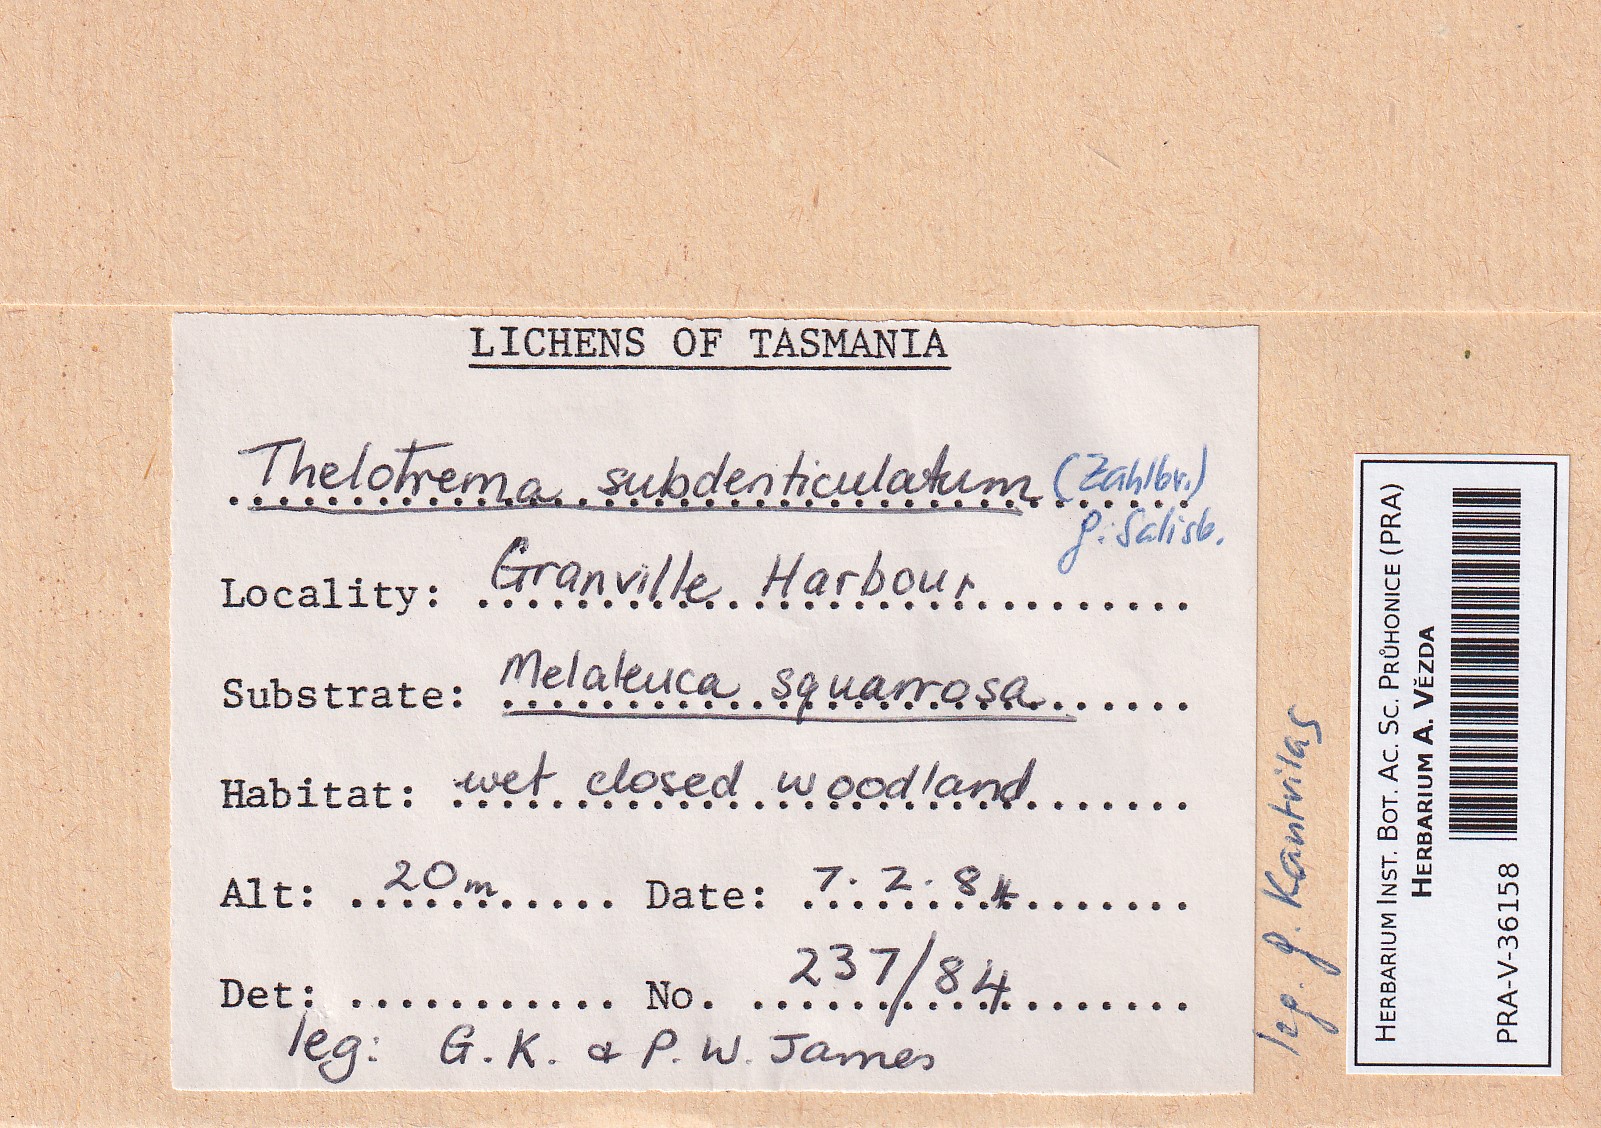 LICHENS OF TASMANIA
Thelotrema subdenticulatum (Zahlbr.)
G. Salisb.
Locality: Granville Harbour
Substrate: Melaleuca squarrosa
Habitat: wet closed woodland
Alt: 20m Date: 7.2.84
Det: No. 237/84
leg: G.K. & P.W. James
leg. G. Kantvilas
HERBARIUM INST. BOT. AC. SC. PRŮHONICE (PRA)
HERBARIUM A. VĚZDA
PRA-V-36158